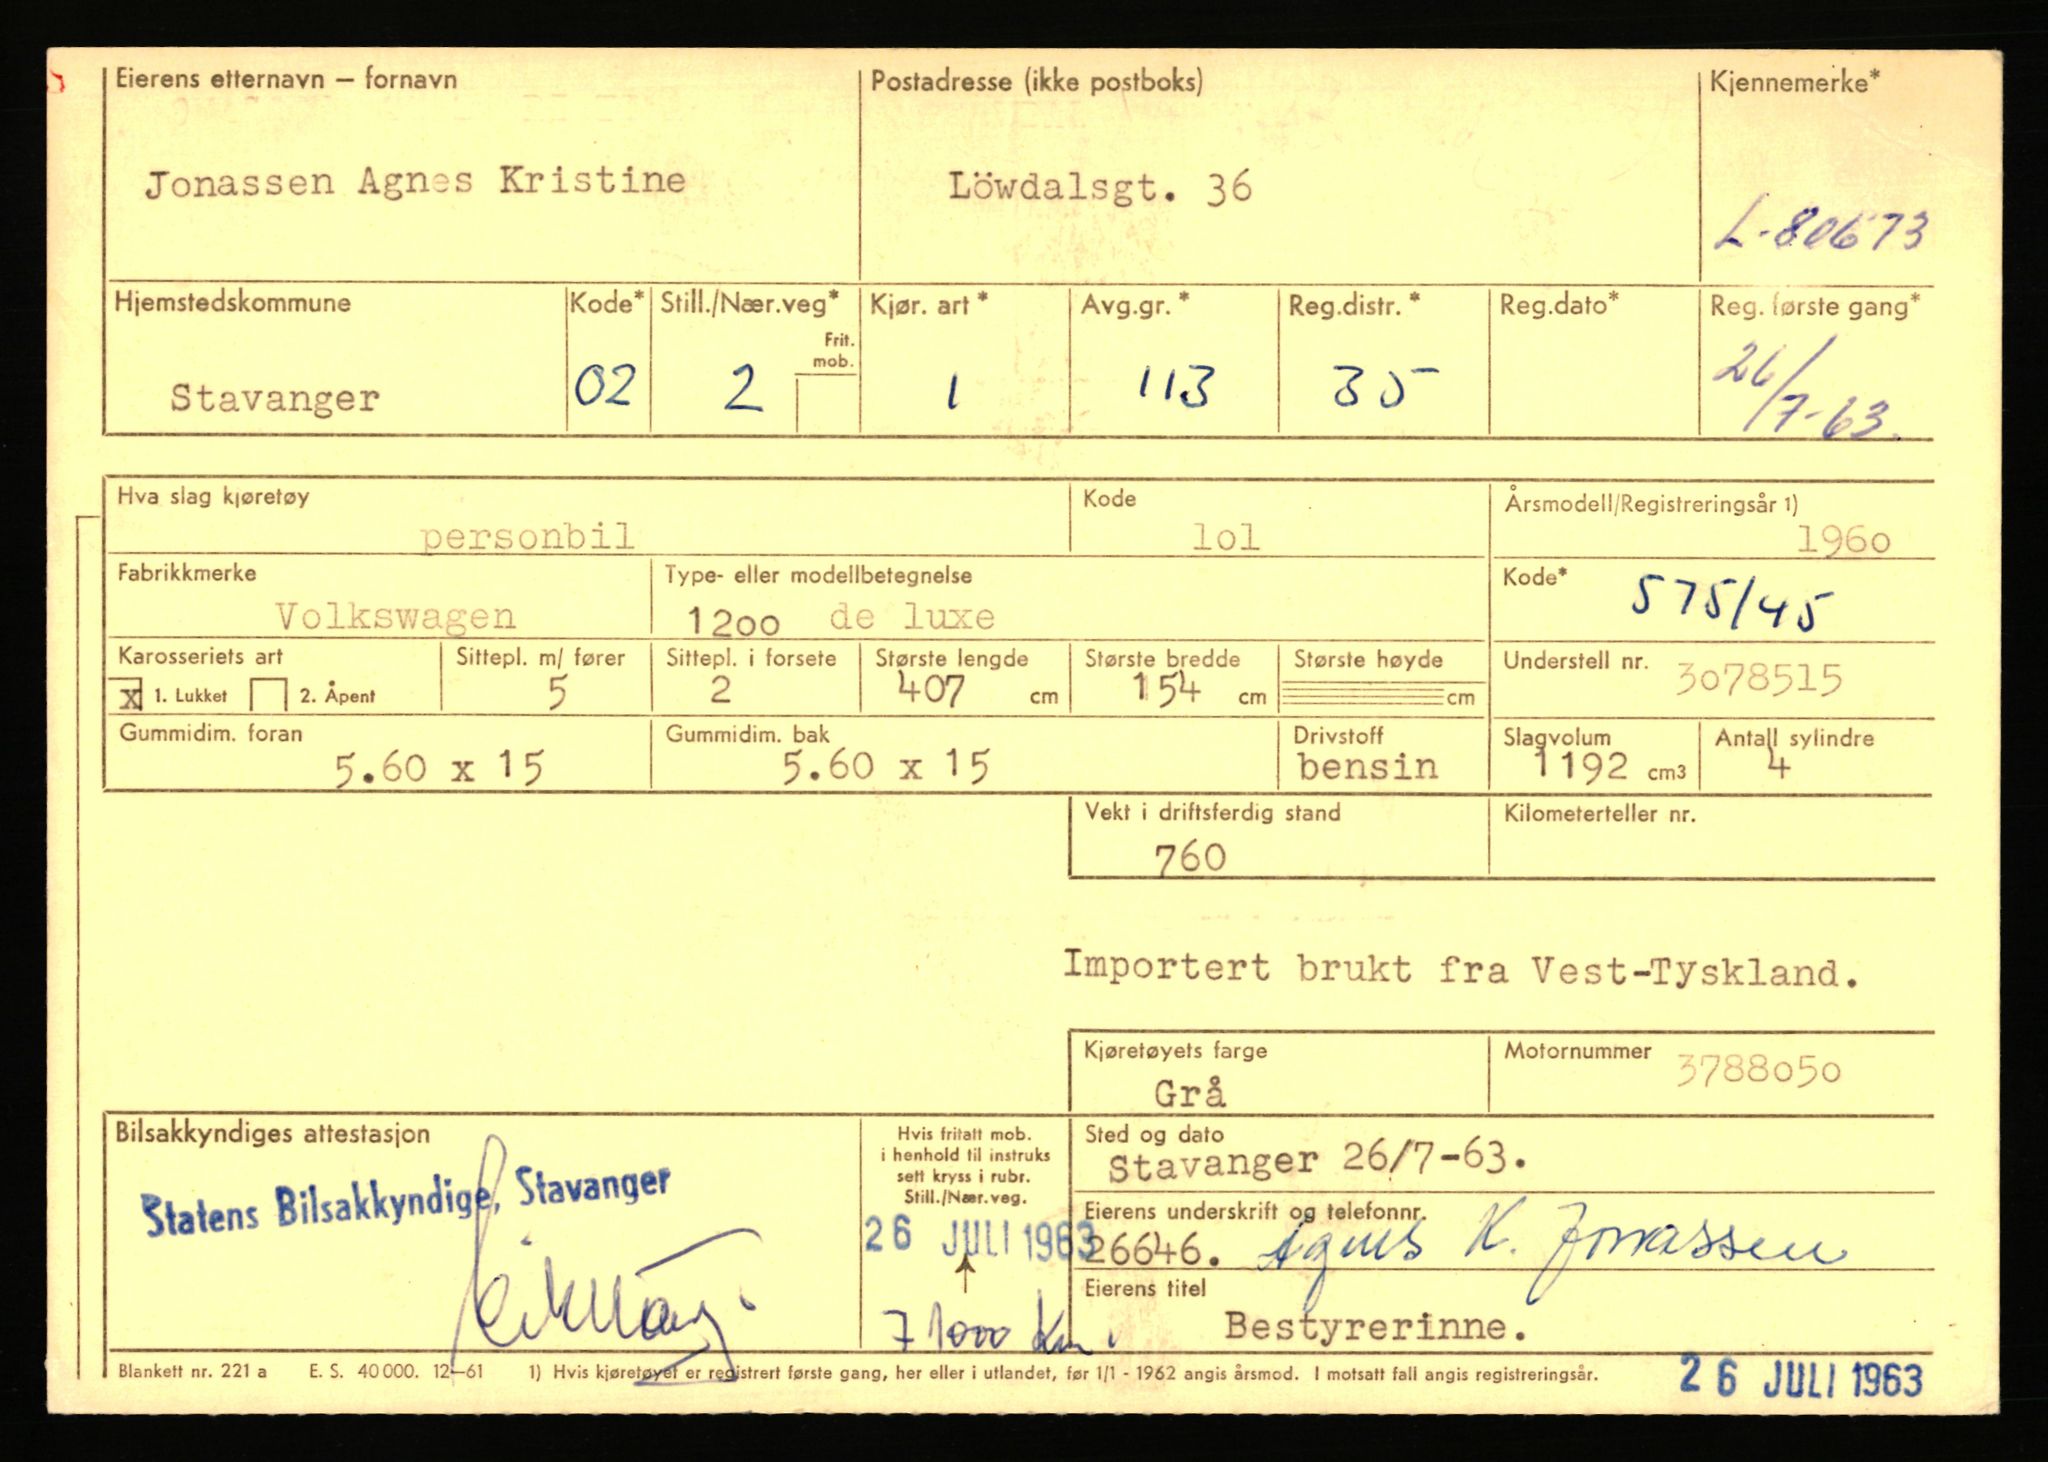 Eierens etternavn — fornavn Postadresse (ikke postboks) Kjennemerke*
Jonassen Agnes Kristine Löwdalsgt. 36 L-80673
Hjemstedskommune Kode* Still./Nær.veg* Kjør. art* Avg.gr.* Reg.distr.* Reg.dato* Reg. første gang*
Frit. mob.
Stavanger 02 2 1 113 35 26/7-63.
Hva slag kjøretøy Kode Årsmodell/Registreringsår 1)
personbil lol 196o
Fabrikkmerke Type- eller modellbetegnelse Kode*
Volkswagen 12oo de luxe 575/45
Karosseriets art Sittepl. m/ fører Sittepl. i forsete Største lengde Største bredde Største høyde Understell nr. 3o78515
x 1. Lukket 2. Åpent 5 2 407 cm 154 cm cm
Gummidim. foran Gummidim. bak Drivstoff Slagvolum Antall sylindre
5.60 x 15 5.60 x 15 bensin 1192 cm3 4
Vekt i driftsferdig stand Kilometerteller nr.
760
Importert brukt fra Vest-Tyskland.
Kjøretøyets farge Motornummer 3788o5o
Grå
Bilsakkyndiges attestasjon Hvis fritatt mob. i henhold til instruks sett kryss i rubr. Still./Nær.veg. Sted og dato
Stavanger 26/7-63.
Statens Bilsakkyndige, Stavanger
Eierens underskrift og telefonnr.
26 JULI 1963 26646. Agnes K. Jonassen
Eierens titel
71000 Km. Bestyrerinne.
Blankett nr. 221 a E. S. 40 000. 12—61 1) Hvis kjøretøyet er registrert første gang, her eller i utlandet, før 1/1 - 1962 angis årsmod. I motsatt fall angis registreringsår.
26 JULI 1963